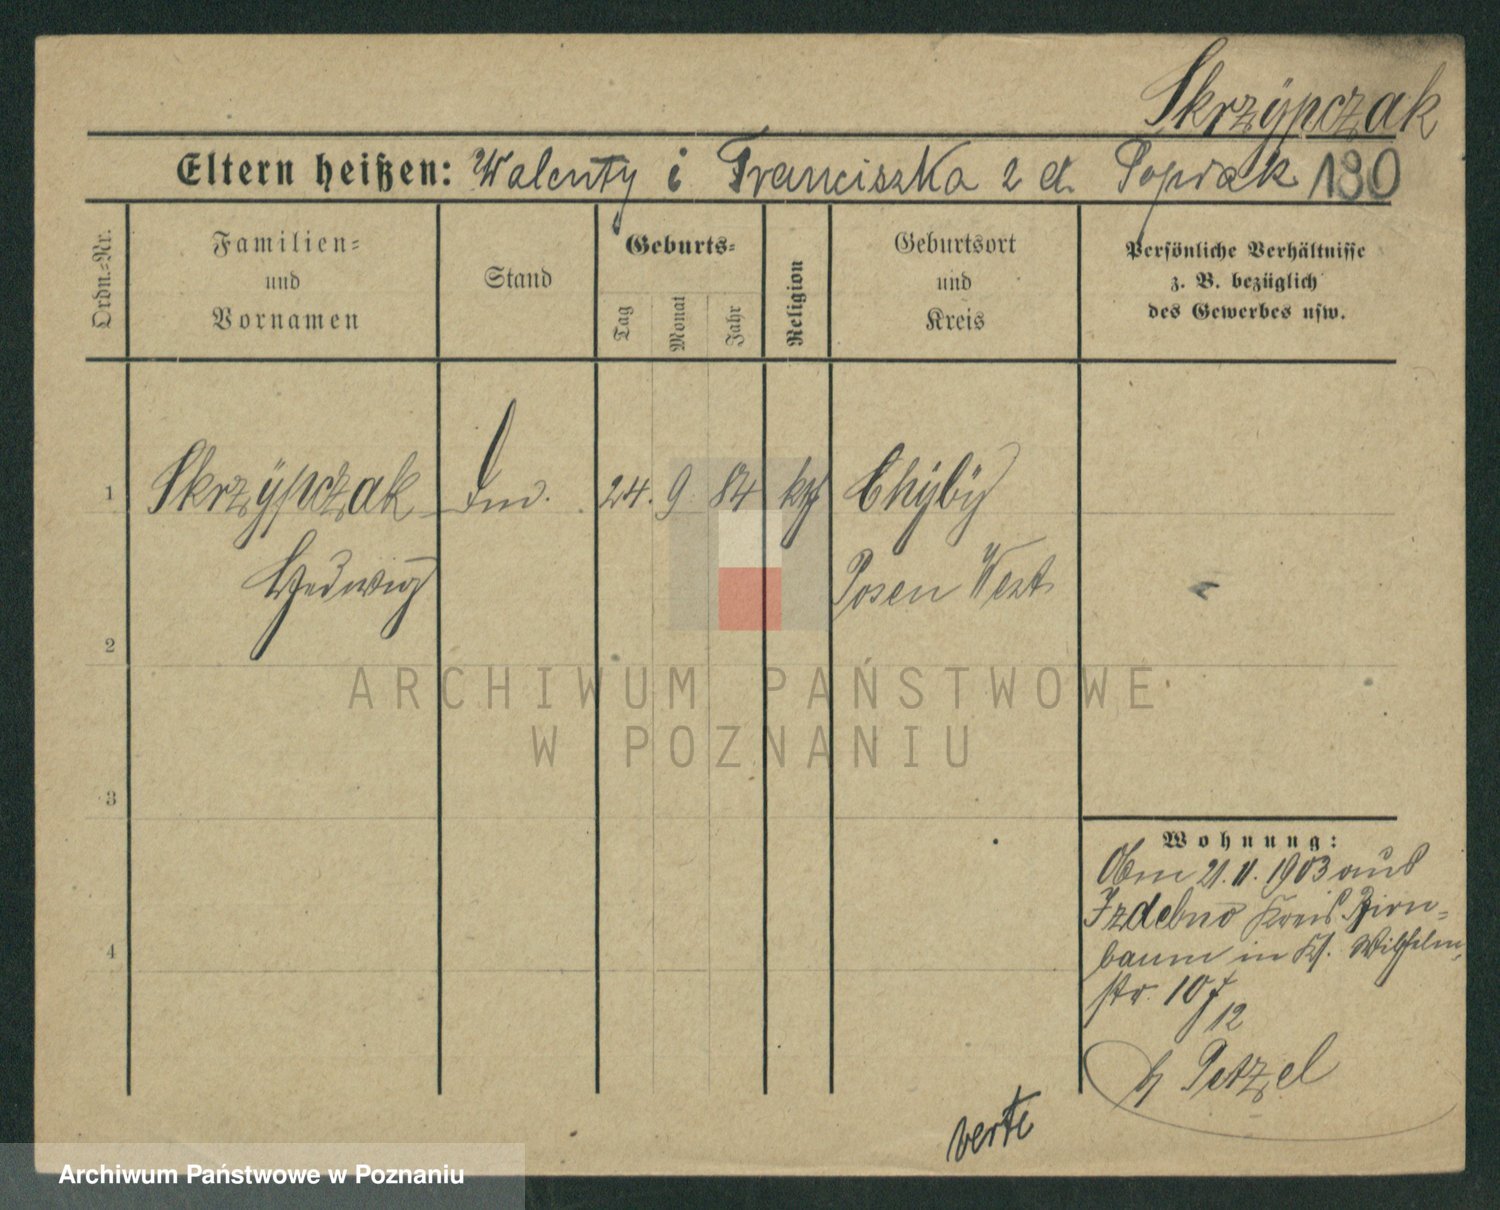 Skrzypczak
Eltern heißen: Walenty i Franciszka z d. Popiak 130
Ordn.-Nr.
Familien-
und
Vornamen
Stand
Geburts-
Tag
Monat
Jahr
Religion
Geburtsort
und
Kreis
Persönliche Verhältnisse
z. B. bezüglich
des Gewerbes usw.
1 Skrzypczak 24. 9 84 kth Chyby
Hedwig Posen West
2
3
4
Wohnung:
21. 11. 1903 aus
Izdebno Kreis Birn-
baum in Wilhelm-
str. 10
12
b Petzel
verte
ARCHIWUM PAŃSTWOWE
W POZNANIU
Archiwum Państwowe w Poznaniu